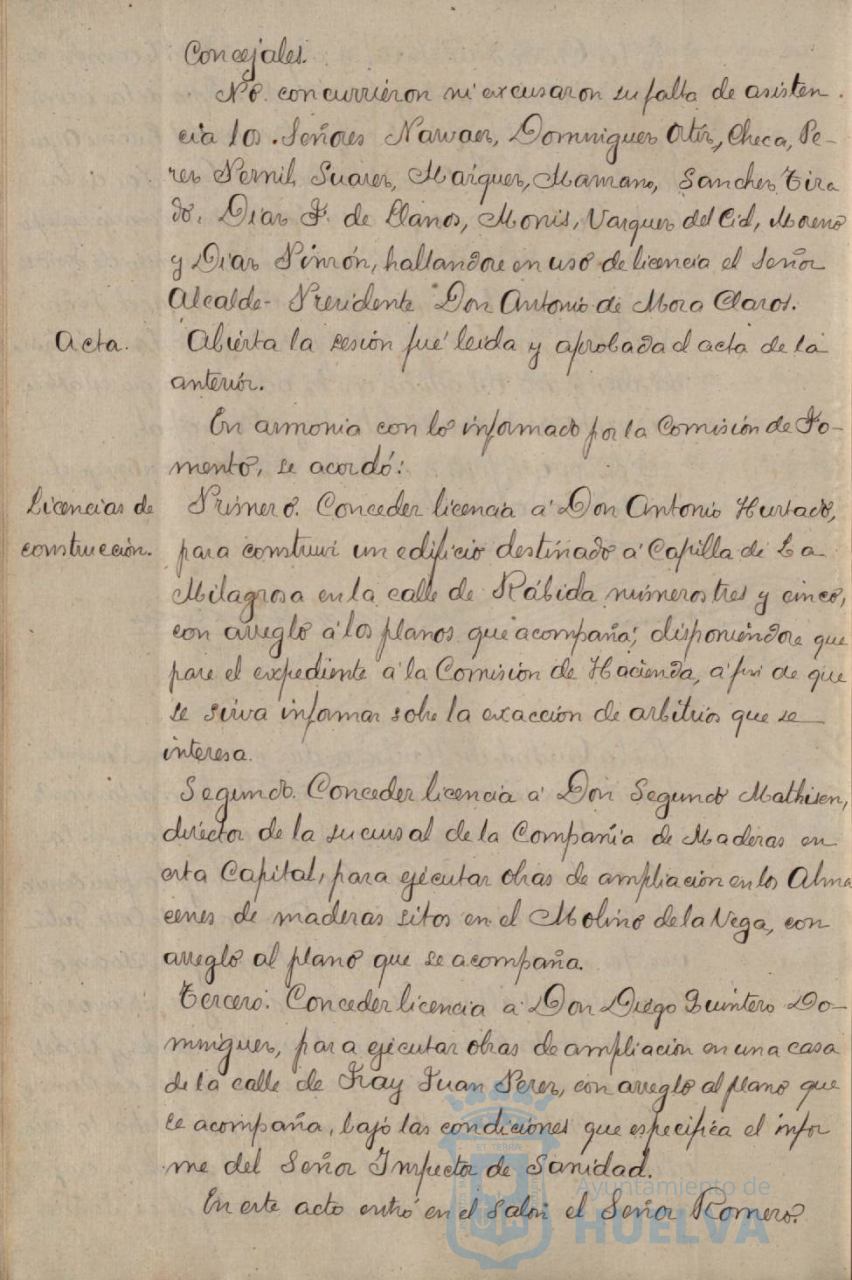 Concejales.
No concurrieron ni excusaron su falta de asisten-
cia los Señores Narvaez, Dominguez Ortiz, Checa, Pe-
rez Pernil, Suarez, Marquez, Manzano, Sanchez Tira
do, Diaz F. de Llanos, Monis, Vazquez del Cid, Moreno
y Diaz Pinzón, hallandose en uso de licencia el Señor
Alcalde-Presidente Don Antonio de Mora Claros.
Acta. Abierta la sesión fué leida y aprobada el acta de la
anterior.
En armonia con lo informado por la Comisión de Fo-
mento, se acordó:
Licencias de Primero. Conceder licencia á Don Antonio Hurtado,
construcción. para construir un edificio destinado á Capilla de La
Milagrosa en la calle de Rábida números tres y cinco,
con arreglo á los planos que acompaña; disponiéndose que
pase el expediente á la Comisión de Hacienda, á fin de que
se sirva informar sobre la exacción de arbitrios que se
interesa.
Segundo. Conceder licencia á Don Segundo Mathisen,
director de la sucursal de la Compañía de Maderas en
esta Capital, para ejecutar obras de ampliación en los Alma
cenes de maderas sitos en el Molino de la Vega, con
arreglo al plano que se acompaña.
Tercero. Conceder licencia á Don Diego Quintero Do-
minguez, para ejecutar obras de ampliación en una casa
de la calle de Fray Juan Perez, con arreglo al plano que
se acompaña, bajo las condiciones que especifica el infor
me del Señor Inspector de Sanidad.
En este acto entró en el salón el Señor Romero.
Ayuntamiento de
HUELVA